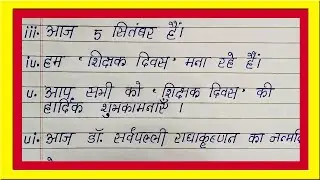 iii. आज 5 सितंबर हैं।
iv. हम 'शिक्षक दिवस' मना रहे हैं।
v. आप सभी को 'शिक्षक दिवस' की
हार्दिक शुभकामनाएँ।
vi. आज डॉ. सर्वपल्ली राधाकृष्णन का